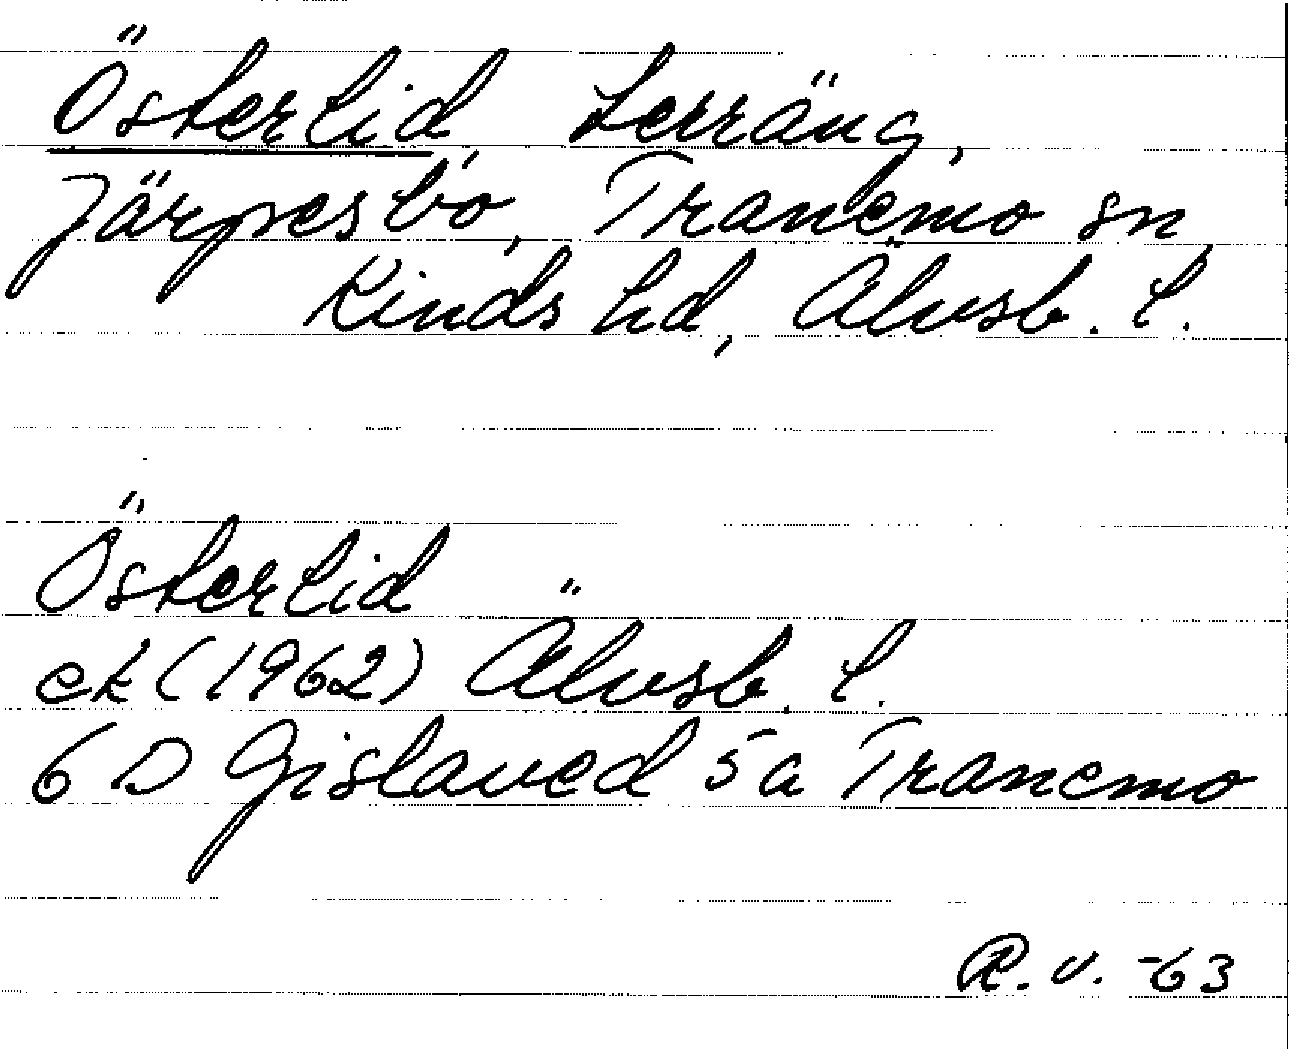 Österlid, terräng,
Järpesbo, Tranemo sn
Kinds hd, Älvsb. l.
Österlid
ek (1962) Älvsb. l.
6 D Gislaved 5 a Tranemo
R. v. -63